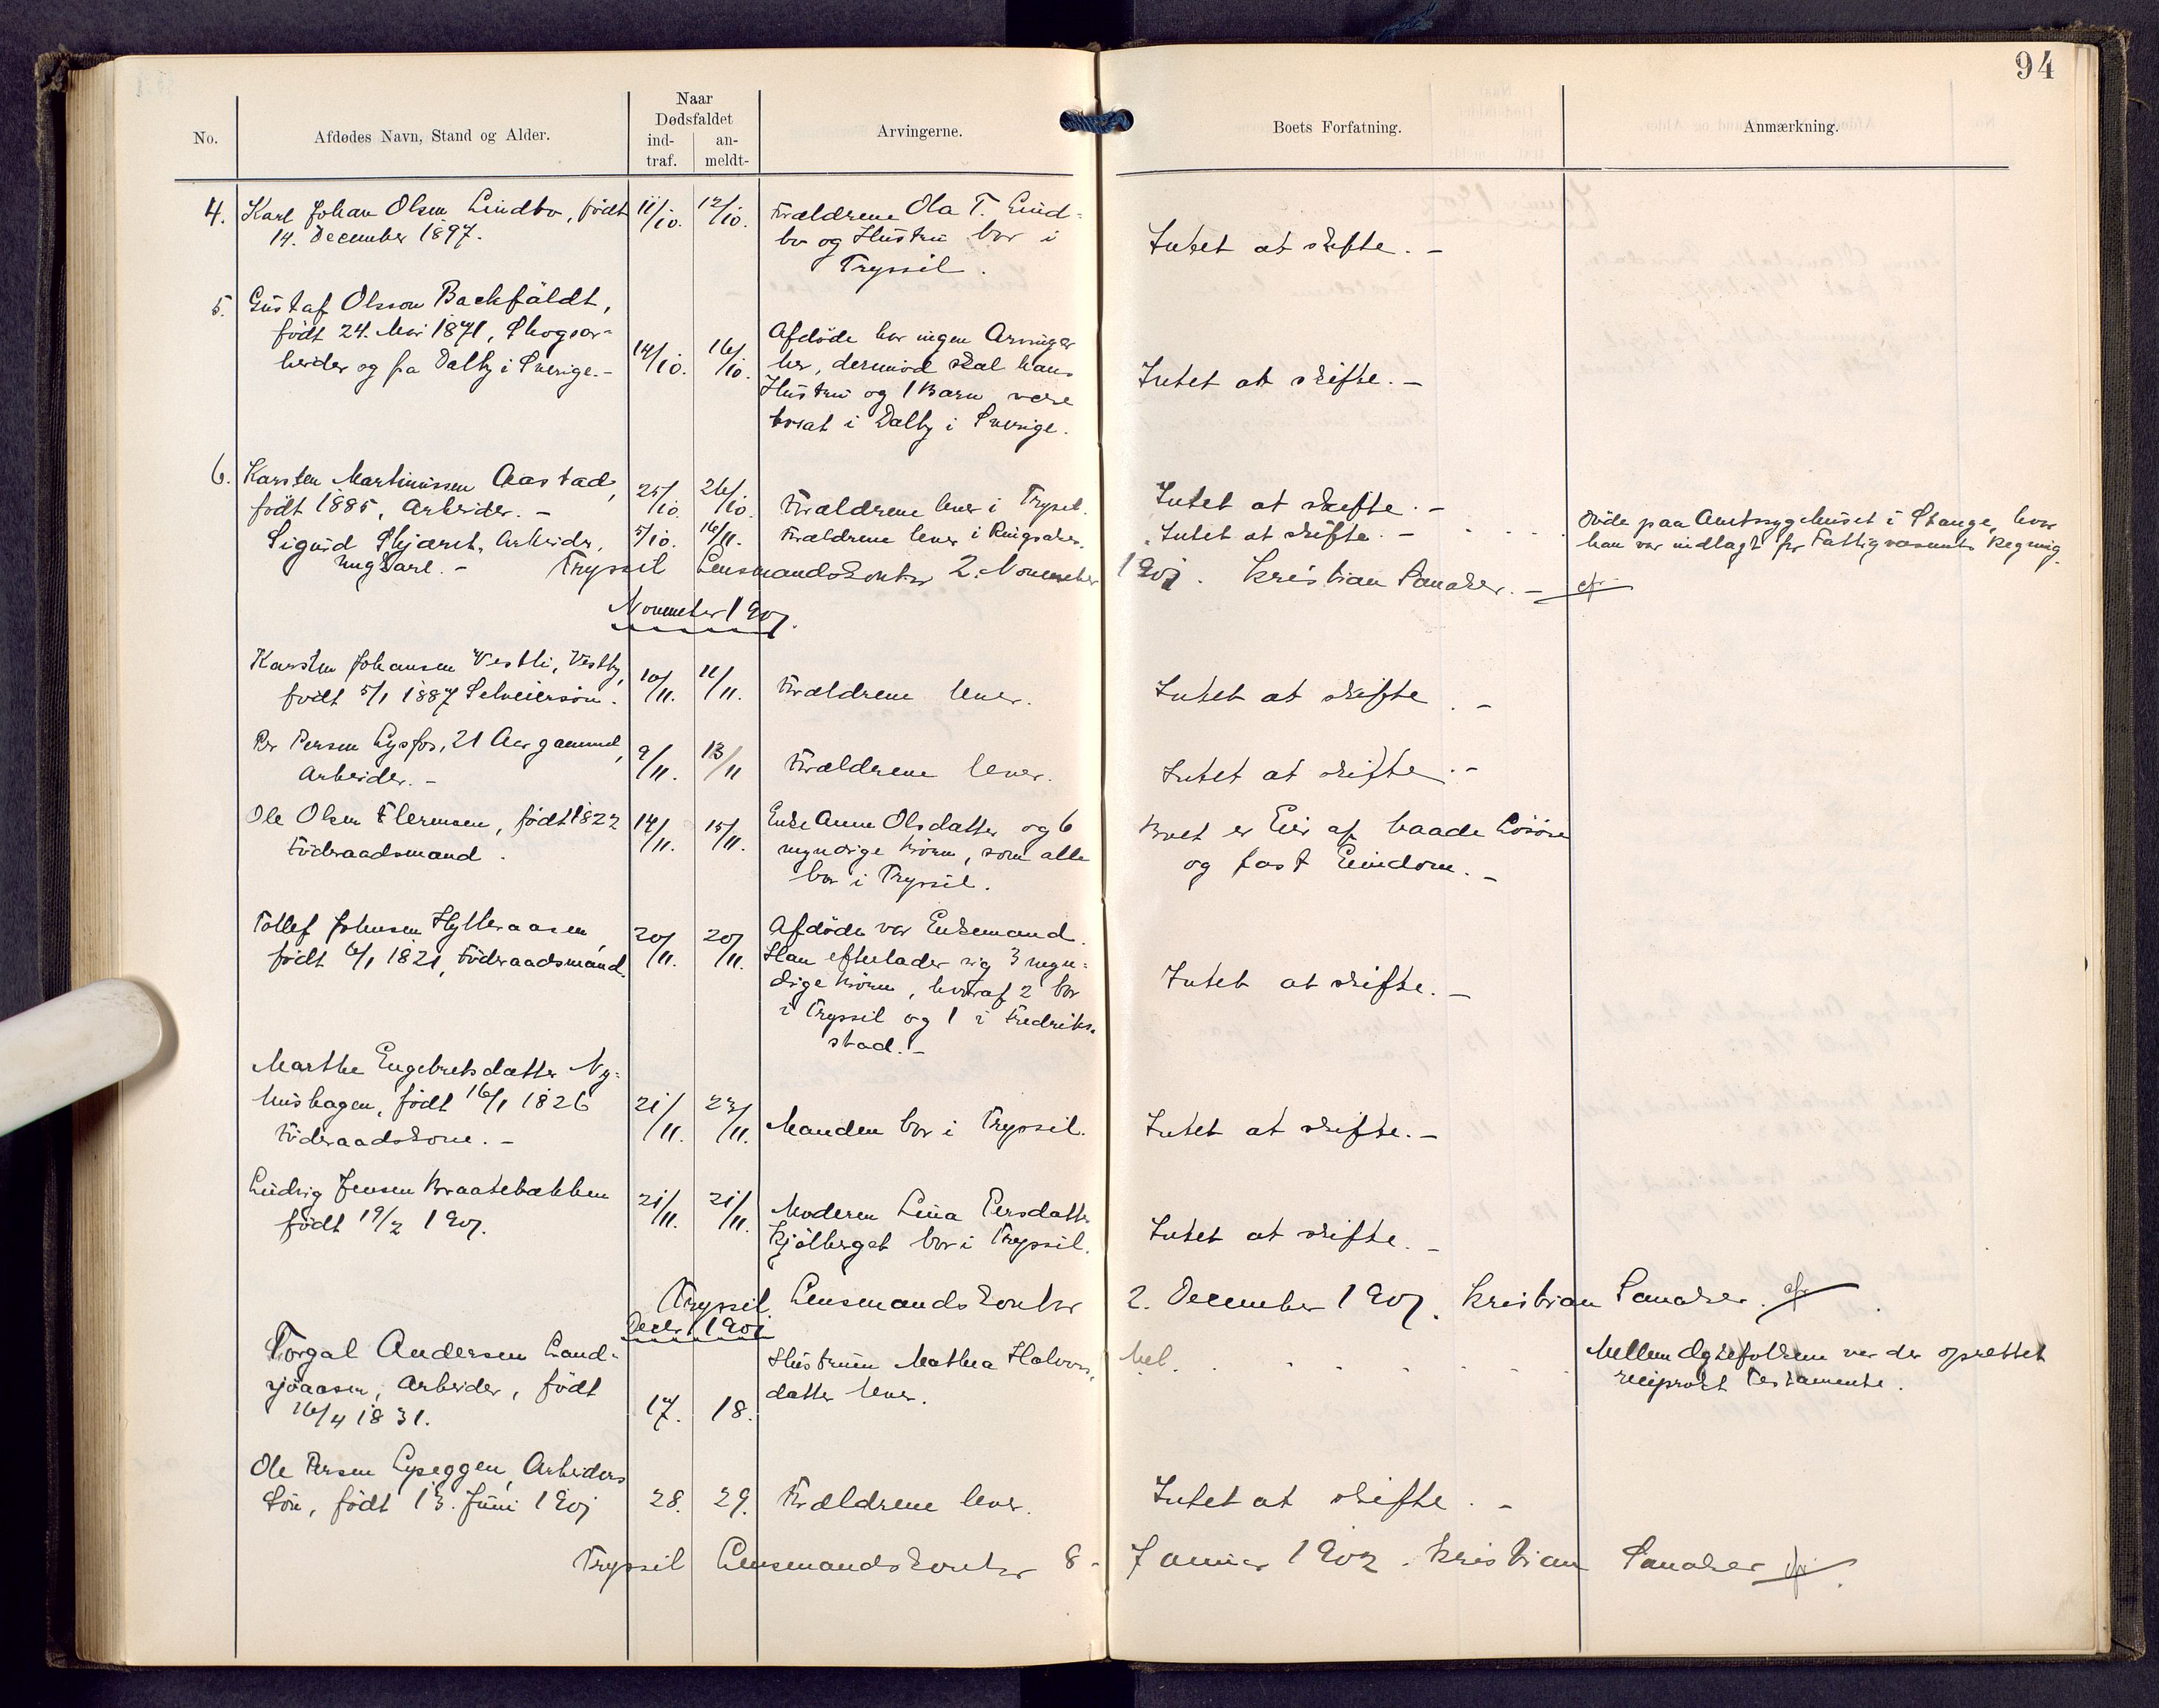 94
No.
Afdødes Navn, Stand og Alder.
Naar
Dødsfaldet
ind-
traf.
an-
meldt-
Arvingerne.
Boets Forfatning.
Anmærkning.
4. Karl Johan Olsen Lindbo, født
14. December 1897.
11/10. 12/10.
Forældrene Ola T. Lind-
bo og Hustru bor i
Tryssil.
Intet at skifte. -
5. Gustaf Olsson Backfäldt,
født 24. Mai 1871, Skogsar-
beider og fra Dalby i Sverige. -
14/10. 16/10.
Afdøde har ingen Arvinger
her, derimod skal hans
Hustru og 1 Barn være
bosat i Dalby i Sverige.
Intet at skifte. -
6. Karsten Martinussen Aastad,
født 1885, Arbeider. -
25/10. 26/10.
Forældrene lever i Trysil.
Intet at skifte. -
Sigurd Skjæret, Arbeider,
ungkarl. -
5/10. 16/11.
Forældrene lever i Ringsaker.
Intet at skifte. -
Døde paa Amtssygehuset i Stange, hvor
han var indlagt for Fattigvæsenets Regning.
Tryssil Lensmandskontor 2. November 1901. Kristian Sanaker. -
November 1901.
Karsten Johansen Vestli, Vestby,
født 5/1 1887 Selveiersøn.
10/11. 11/11.
Forældrene lever.
Intet at skifte. -
Per Persen Lysfos, 21 Aar gammel,
Arbeider. -
9/11. 13/11
Forældrene lever.
Intet at skifte. -
Ole Olsen Flermoen, født 1822
Föderaadsmand.
14/11. 15/11.
Enke Anne Olsdatter og 6
myndige Børn, som alle
bor i Tryssil.
Boet er Eier af baade Løsøre
og fast Eiendom. -
Tollef Johnsen Hylleraasen,
født 6/1 1821, Föderaadsmand.
20/11. 20/11.
Afdøde var Enkemand.
Han efterlader sig 3 myn-
dige Børn, hvoraf 2 bor
i Tryssil og 1 i Fredriks-
stad. -
Intet at skifte. -
Marthe Engebretsdatter Ny-
hushagen, født 16/1 1826
Föderaadskone. -
21/11. 23/11.
Manden bor i Tryssil.
Intet at skifte. -
Ludvig Jensen Braatebækken
født 19/2 1901.
21/11. 21/11.
Moderen Lina Persdatter
Kjølberget bor i Tryssil.
Intet at skifte. -
Tryssil Lensmandskontor 2. December 1901. Kristian Sanaker.
Decbr. 1901
Torgal Andersen Land-
sjøaasen, Arbeider, født
16/4 1831.
17. 18.
Hustruen Mathea Halvors-
datter lever.
Mellem Ægtefolkene var der oprettet
reciprokt Testamente.
Ole Persen Lyseggen, Arbeiders
Søn, født 13. Juni 1901
28. 29.
Forældrene lever.
Intet at skifte. -
Tryssil Lensmandskontor 8 - Januar 1902. Kristian Sanaker